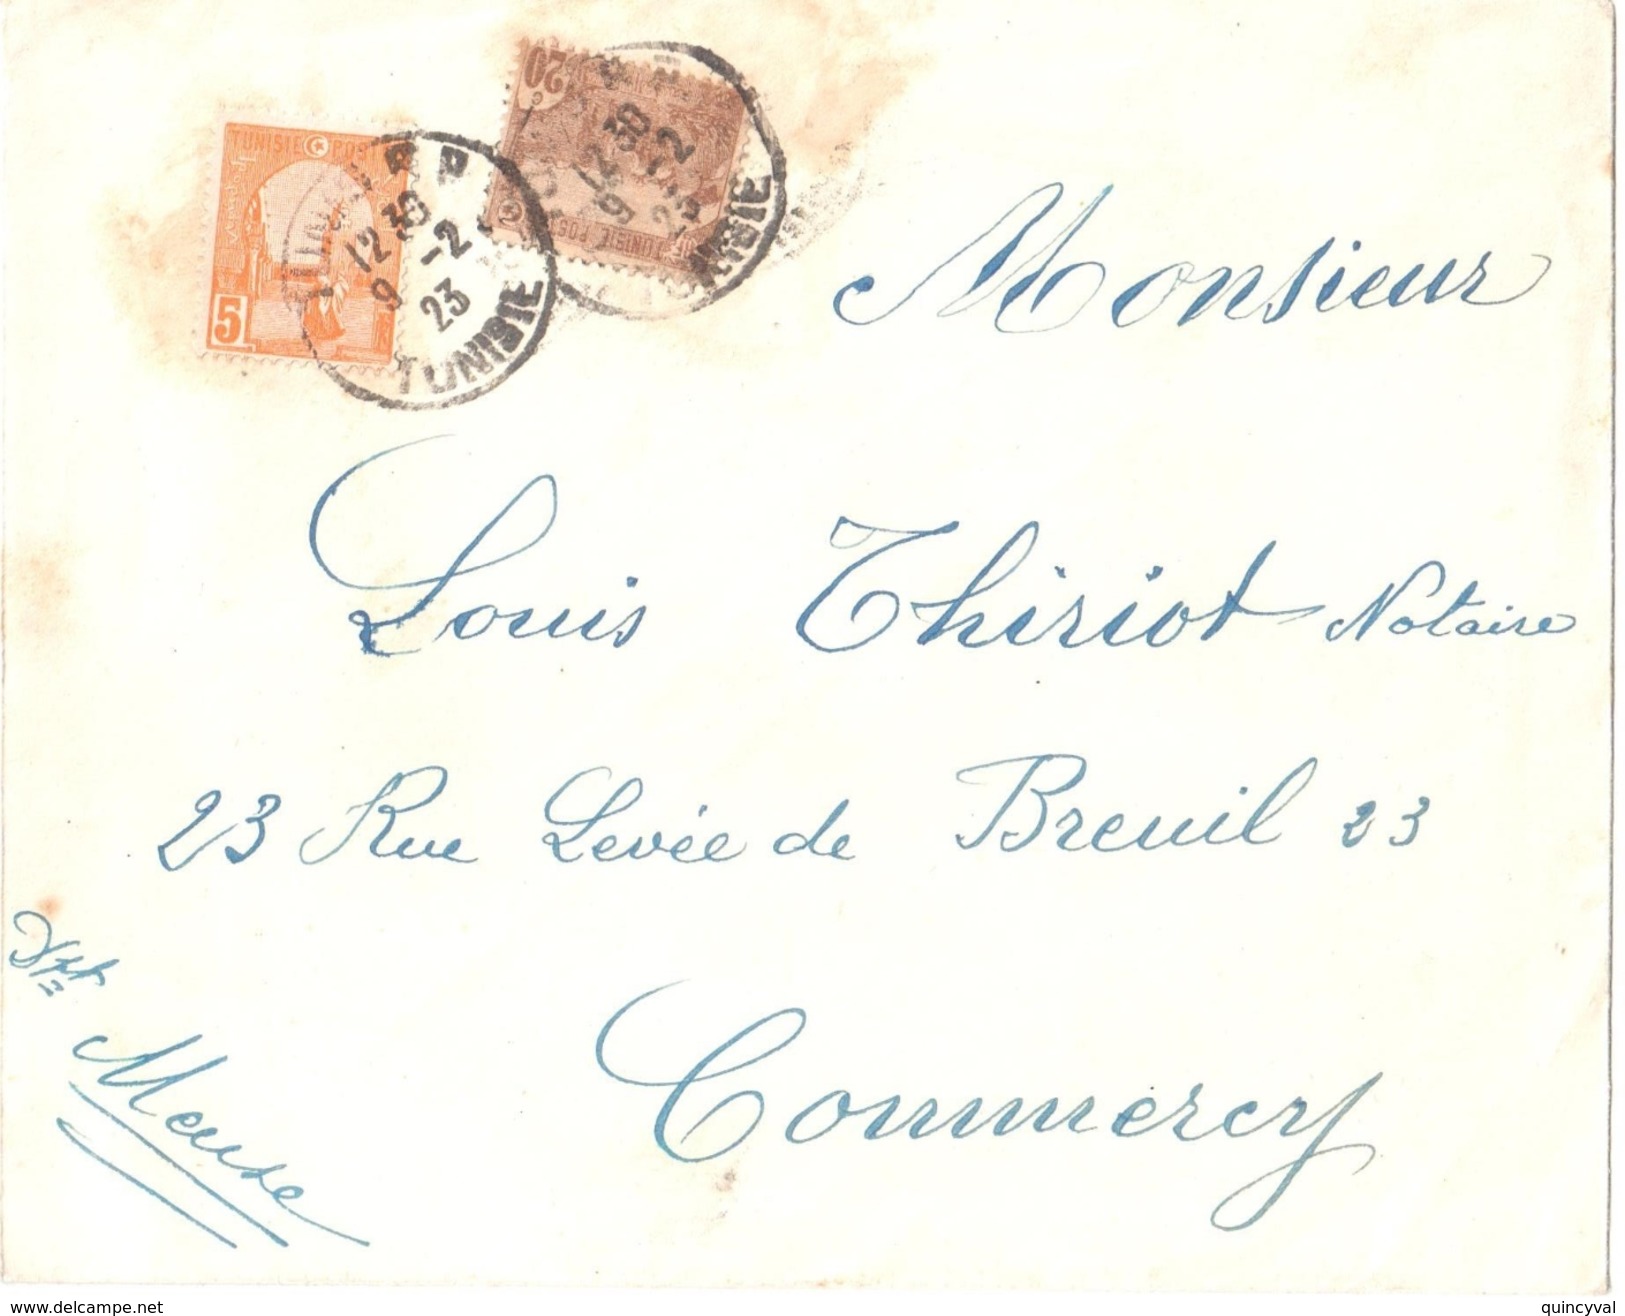 TUNISIE POSTES
5
20
TUNISIE POSTES
12 30
9 -2
23
TUNISIE
12 30
9 -2
23
TUNISIE
Monsieur
Louis Thiriot Notaire
23 Rue Levée de Breuil 23
Commercy
Meuse
www.delcampe.net
quincyval